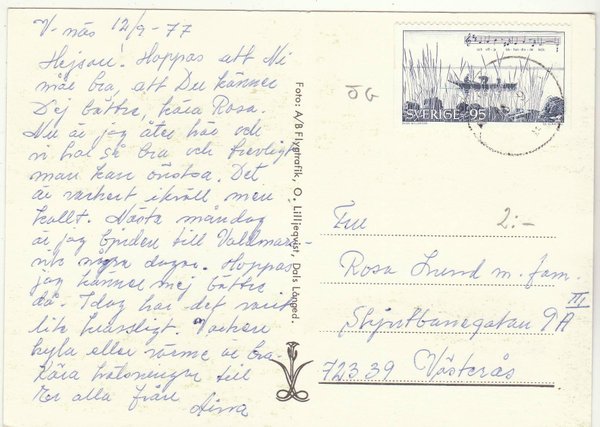 V-näs 12/9-77
Hejsan! Hoppas att Ni
mår bra, att Du känner
Dej bättre, kära Rosa.
Nu är jag åter här och
vi har så bra och trevligt
man kan önska. Det
är vackert ikväll men
kallt. Nästa måndag
är jag bjuden till Valdmars-
vik några dagar. Hoppas
jag känner mej bättre
då. Idag har det varit
lite krassligt. Varken
kyla eller värme är bra.
Kära hälsningar till
Er alla från
Foto: A/B Flygtrafik, O. Lilljeqvist, Dals Långed.
SVERIGE 95
ÖG
2:-
Fru
Rosa Lund m. fam.
9A III
72339 Västerås